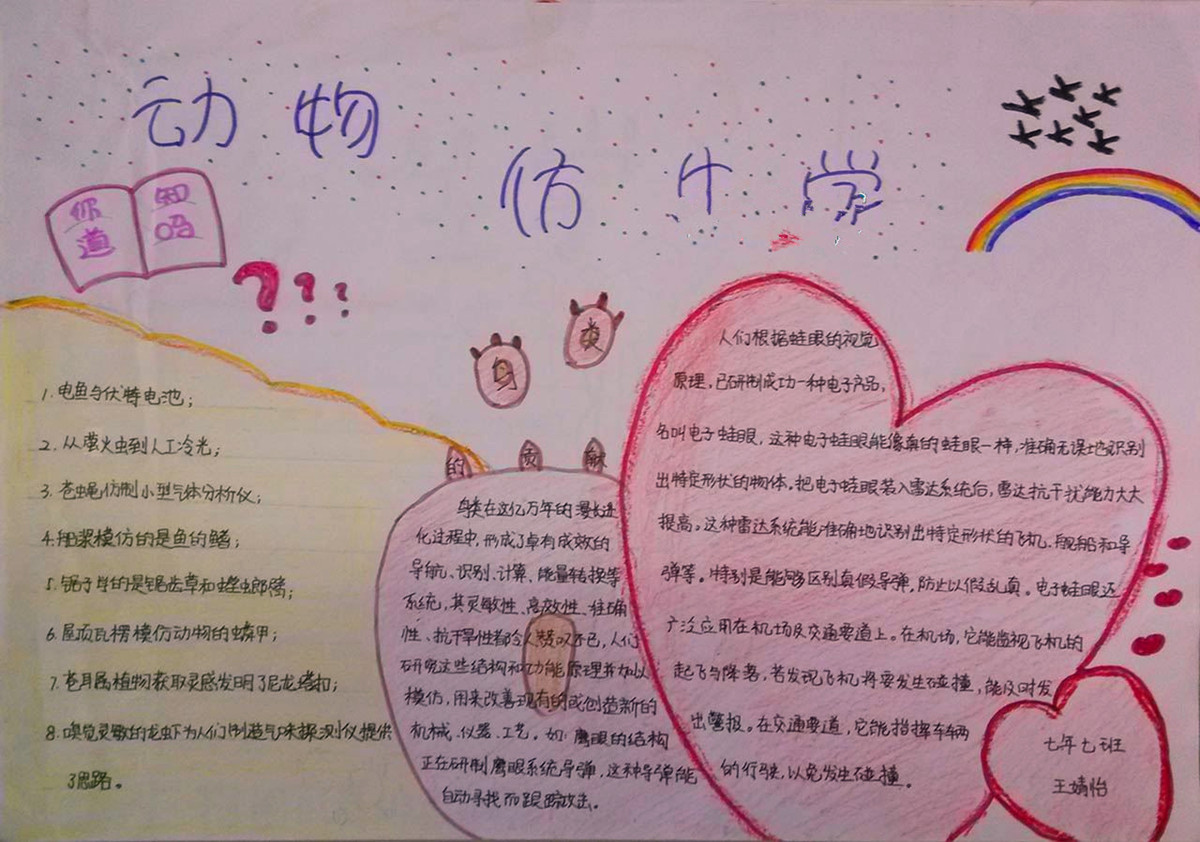 动物
仿生学
你知
道吗
???
1. 电鱼与伏特电池；
2. 从萤火虫到人工冷光；
3. 苍蝇仿制小型气体分析仪；
4. 船桨模仿的是鱼的鳍；
5. 锯子学的是锯齿草和螳螂臂；
6. 屋顶瓦楞模仿动物的鳞甲；
7. 苍耳属植物获取灵感发明了尼龙搭扣；
8. 嗅觉灵敏的龙虾为人们制造气味探测仪提供
了思路。
鸟类
的贡献
鸟类在这亿万年的漫长进
化过程中，形成了卓有成效的
导航、识别、计算、能量转换等
系统，其灵敏性、高效性、准确
性、抗干旱性都令人赞叹不已，人们
研究这些结构和功能原理并加以
模仿，用来改善现有的或创造新的
机械、仪器、工艺。如：鹰眼的结构
正在研制鹰眼系统导弹，这种导弹能
自动寻找而跟踪攻击。
人们根据蛙眼的视觉
原理，已研制成功一种电子产品，
名叫电子蛙眼，这种电子蛙眼能像真的蛙眼一样，准确无误地识别
出特定形状的物体。把电子蛙眼装入雷达系统后，雷达抗干扰能力大大
提高。这种雷达系统能准确地识别出特定形状的飞机、舰船和导
弹等。特别是能够区别真假导弹，防止以假乱真。电子蛙眼还
广泛应用在机场及交通要道上。在机场，它能监视飞机的
起飞与降落，若发现飞机将要发生碰撞，能及时发
出警报。在交通要道，它能指挥车辆
的行驶，以免发生碰撞。
七年七班
王婧怡